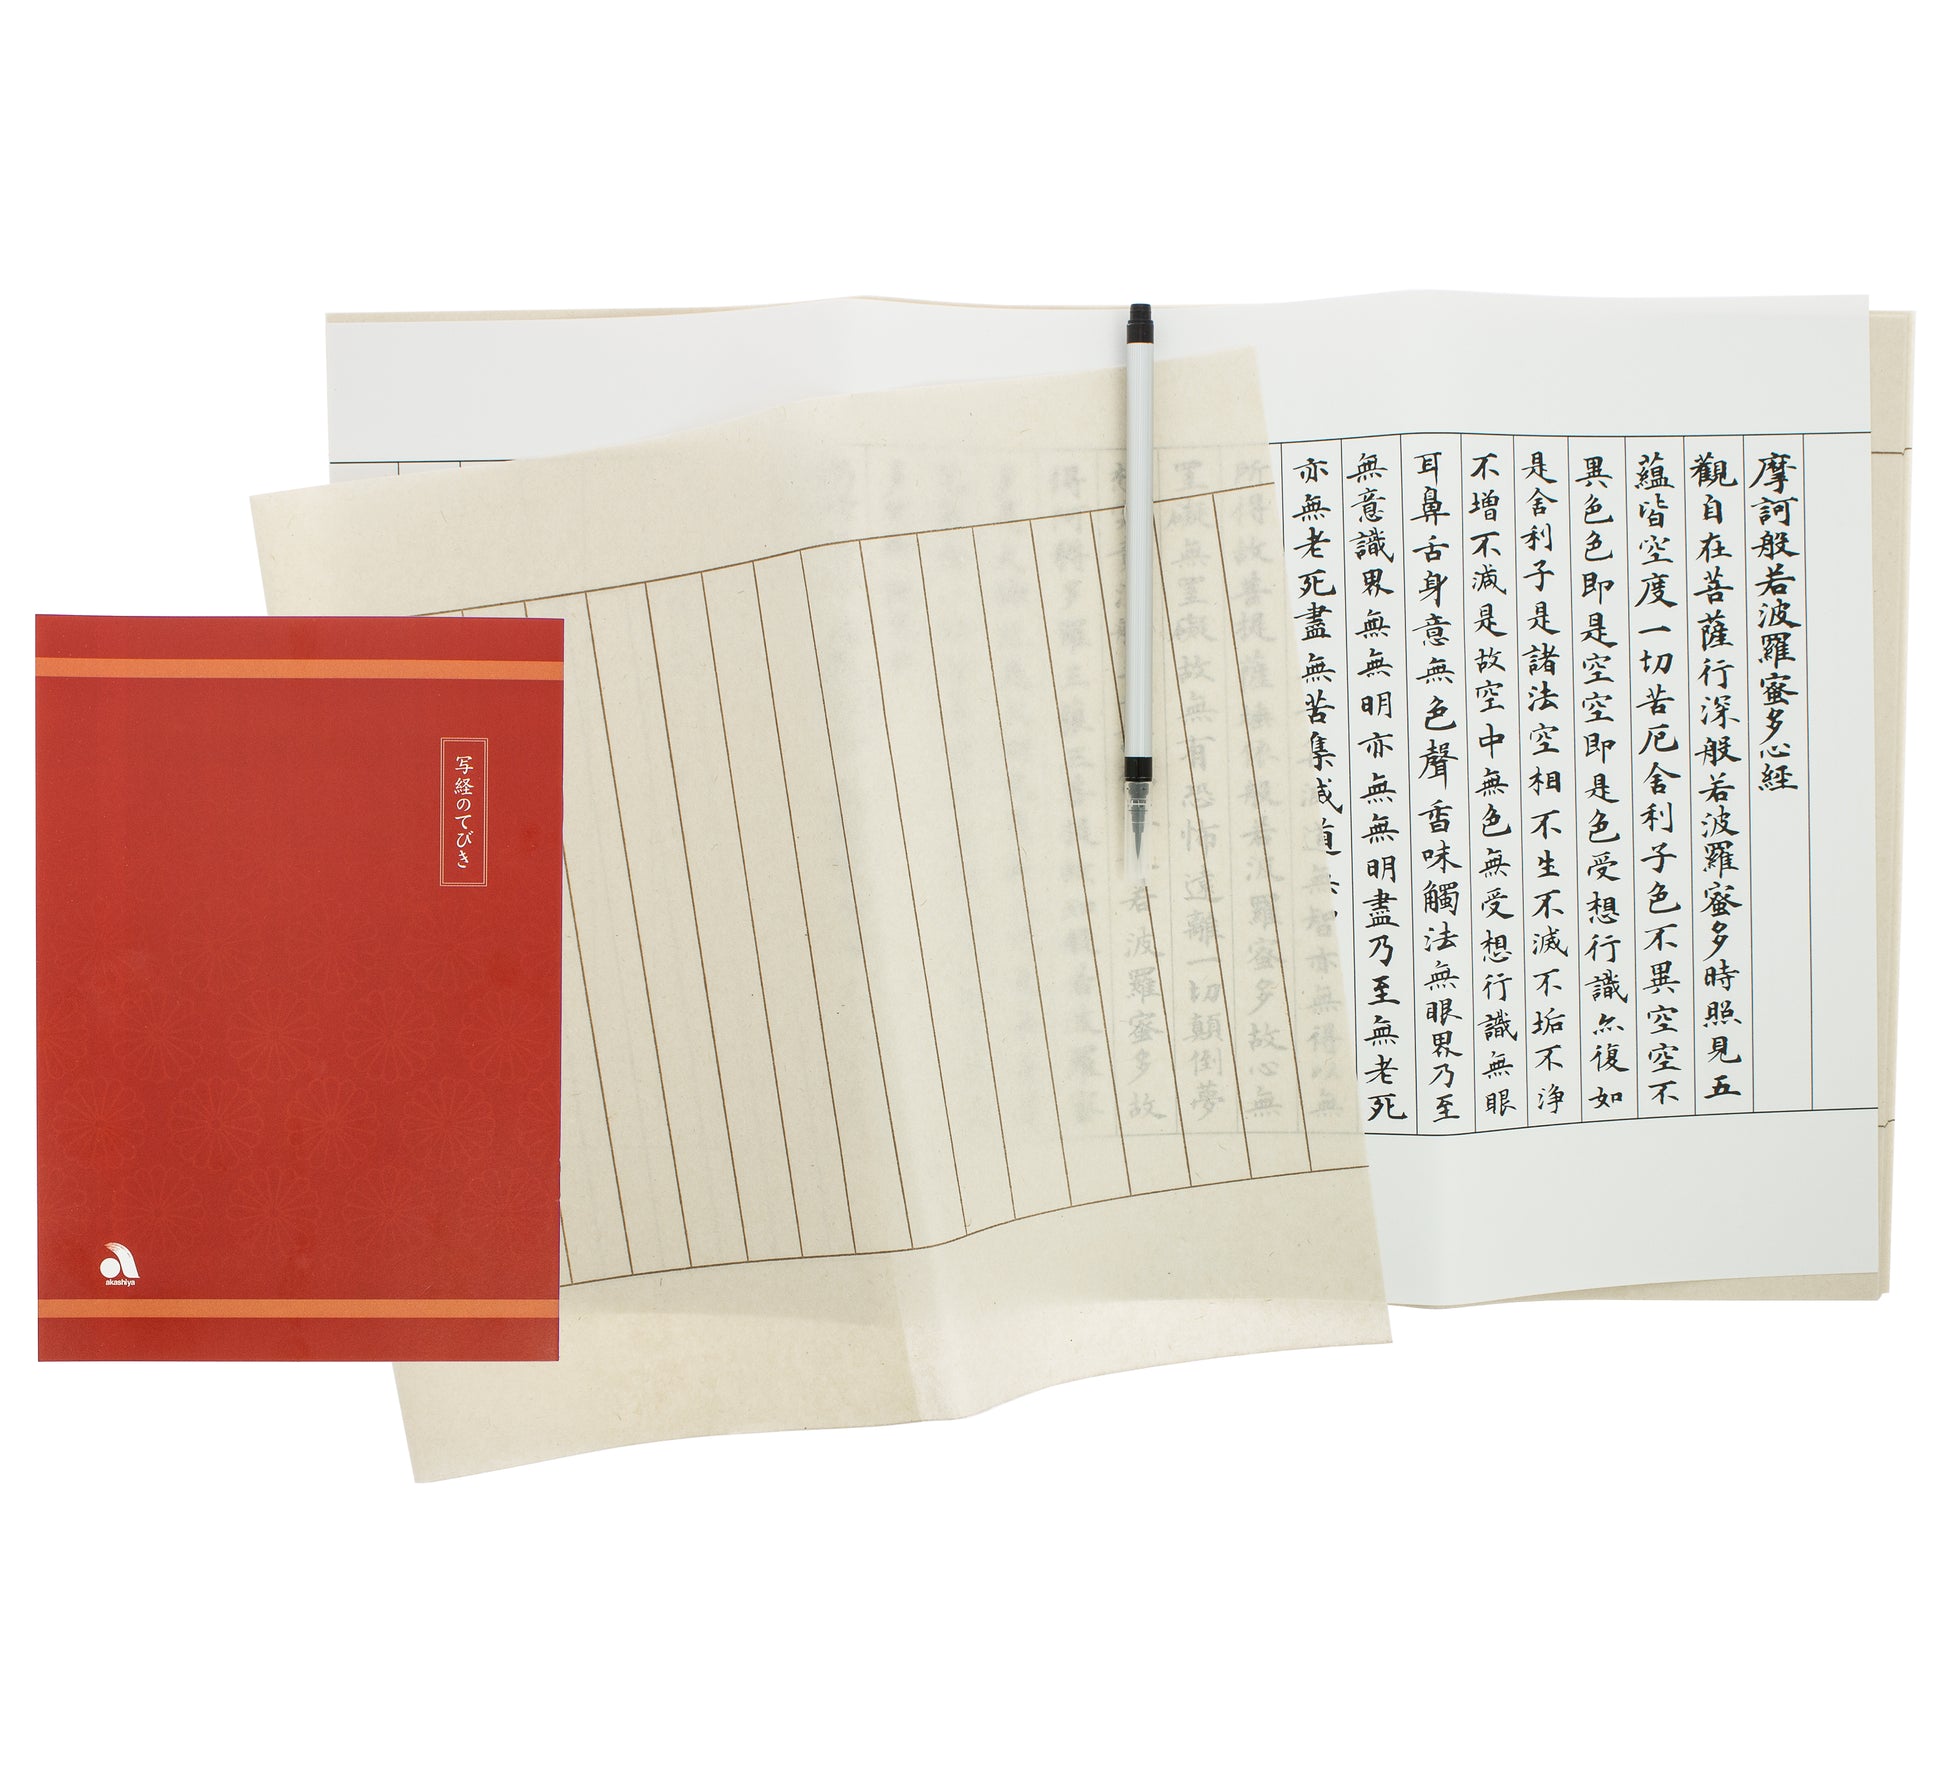 摩訶般若波羅蜜多心経
觀自在菩薩行深般若波羅蜜多時照見五
蘊皆空度一切苦厄舎利子色不異空空不
異色色即是空空即是色受想行識亦復如
是舎利子是諸法空相不生不滅不垢不浄
不増不減是故空中無色無受想行識無眼
耳鼻舌身意無色聲香味觸法無眼界乃至
無意識界無無明亦無無明盡乃至無老死
亦無老死盡無苦集滅道無智亦無得以無
所得故菩提薩埵依般若波羅蜜多故心無
罣礙無罣礙故無有恐怖遠離一切顛倒夢
若波羅蜜多故
写経のてびき
akashiya